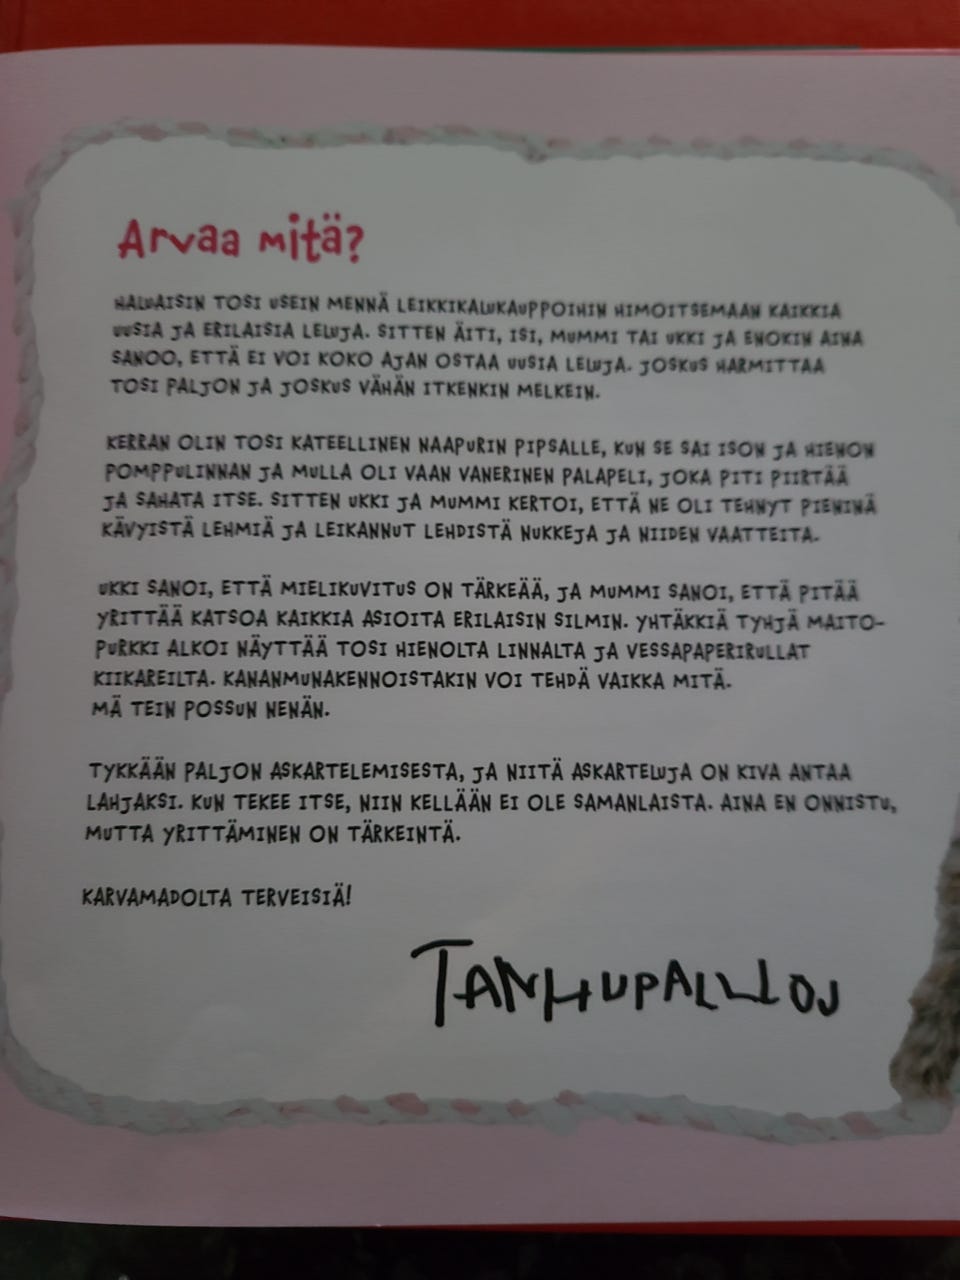 Arvaa mitä?
HALUAISIN TOSI USEIN MENNÄ LEIKKIKALUKAUPPOIHIN HIMOITSEMAAN KAIKKIA
UUSIA JA ERILAISIA LELUJA. SITTEN ÄITI, ISI, MUMMI TAI UKKI JA ENOKIN AINA
SANOO, ETTÄ EI VOI KOKO AJAN OSTAA UUSIA LELUJA. JOSKUS HARMITTAA
TOSI PALJON JA JOSKUS VÄHÄN ITKENKIN MELKEIN.
KERRAN OLIN TOSI KATEELLINEN NAAPURIN PIPSALLE, KUN SE SAI ISON JA HIENON
POMPPULINNAN JA MULLA OLI VAAN VANERINEN PALAPELI, JOKA PITI PIIRTÄÄ
JA SAHATA ITSE. SITTEN UKKI JA MUMMI KERTOI, ETTÄ NE OLI TEHNYT PIENINÄ
KÄVYISTÄ LEHMIÄ JA LEIKANNUT LEHDISTÄ NUKKEJA JA NIIDEN VAATTEITA.
UKKI SANOI, ETTÄ MIELIKUVITUS ON TÄRKEÄÄ, JA MUMMI SANOI, ETTÄ PITÄÄ
YRITTÄÄ KATSOA KAIKKIA ASIOITA ERILAISIN SILMIN. YHTÄKKIÄ TYHJÄ MAITO-
PURKKI ALKOI NÄYTTÄÄ TOSI HIENOLTA LINNALTA JA VESSAPAPERIRULLAT
KIIKAREILTA. KANANMUNAKENNOISTAKIN VOI TEHDÄ VAIKKA MITÄ.
MÄ TEIN POSSUN NENÄN.
TYKKÄÄN PALJON ASKARTELEMISESTA, JA NIITÄ ASKARTELUJA ON KIVA ANTAA
LAHJAKSI. KUN TEKEE ITSE, NIIN KELLÄÄN EI OLE SAMANLAISTA. AINA EN ONNISTU,
MUTTA YRITTÄMINEN ON TÄRKEINTÄ.
KARVAMADOLTA TERVEISIÄ!
TANHUPALLLOJ